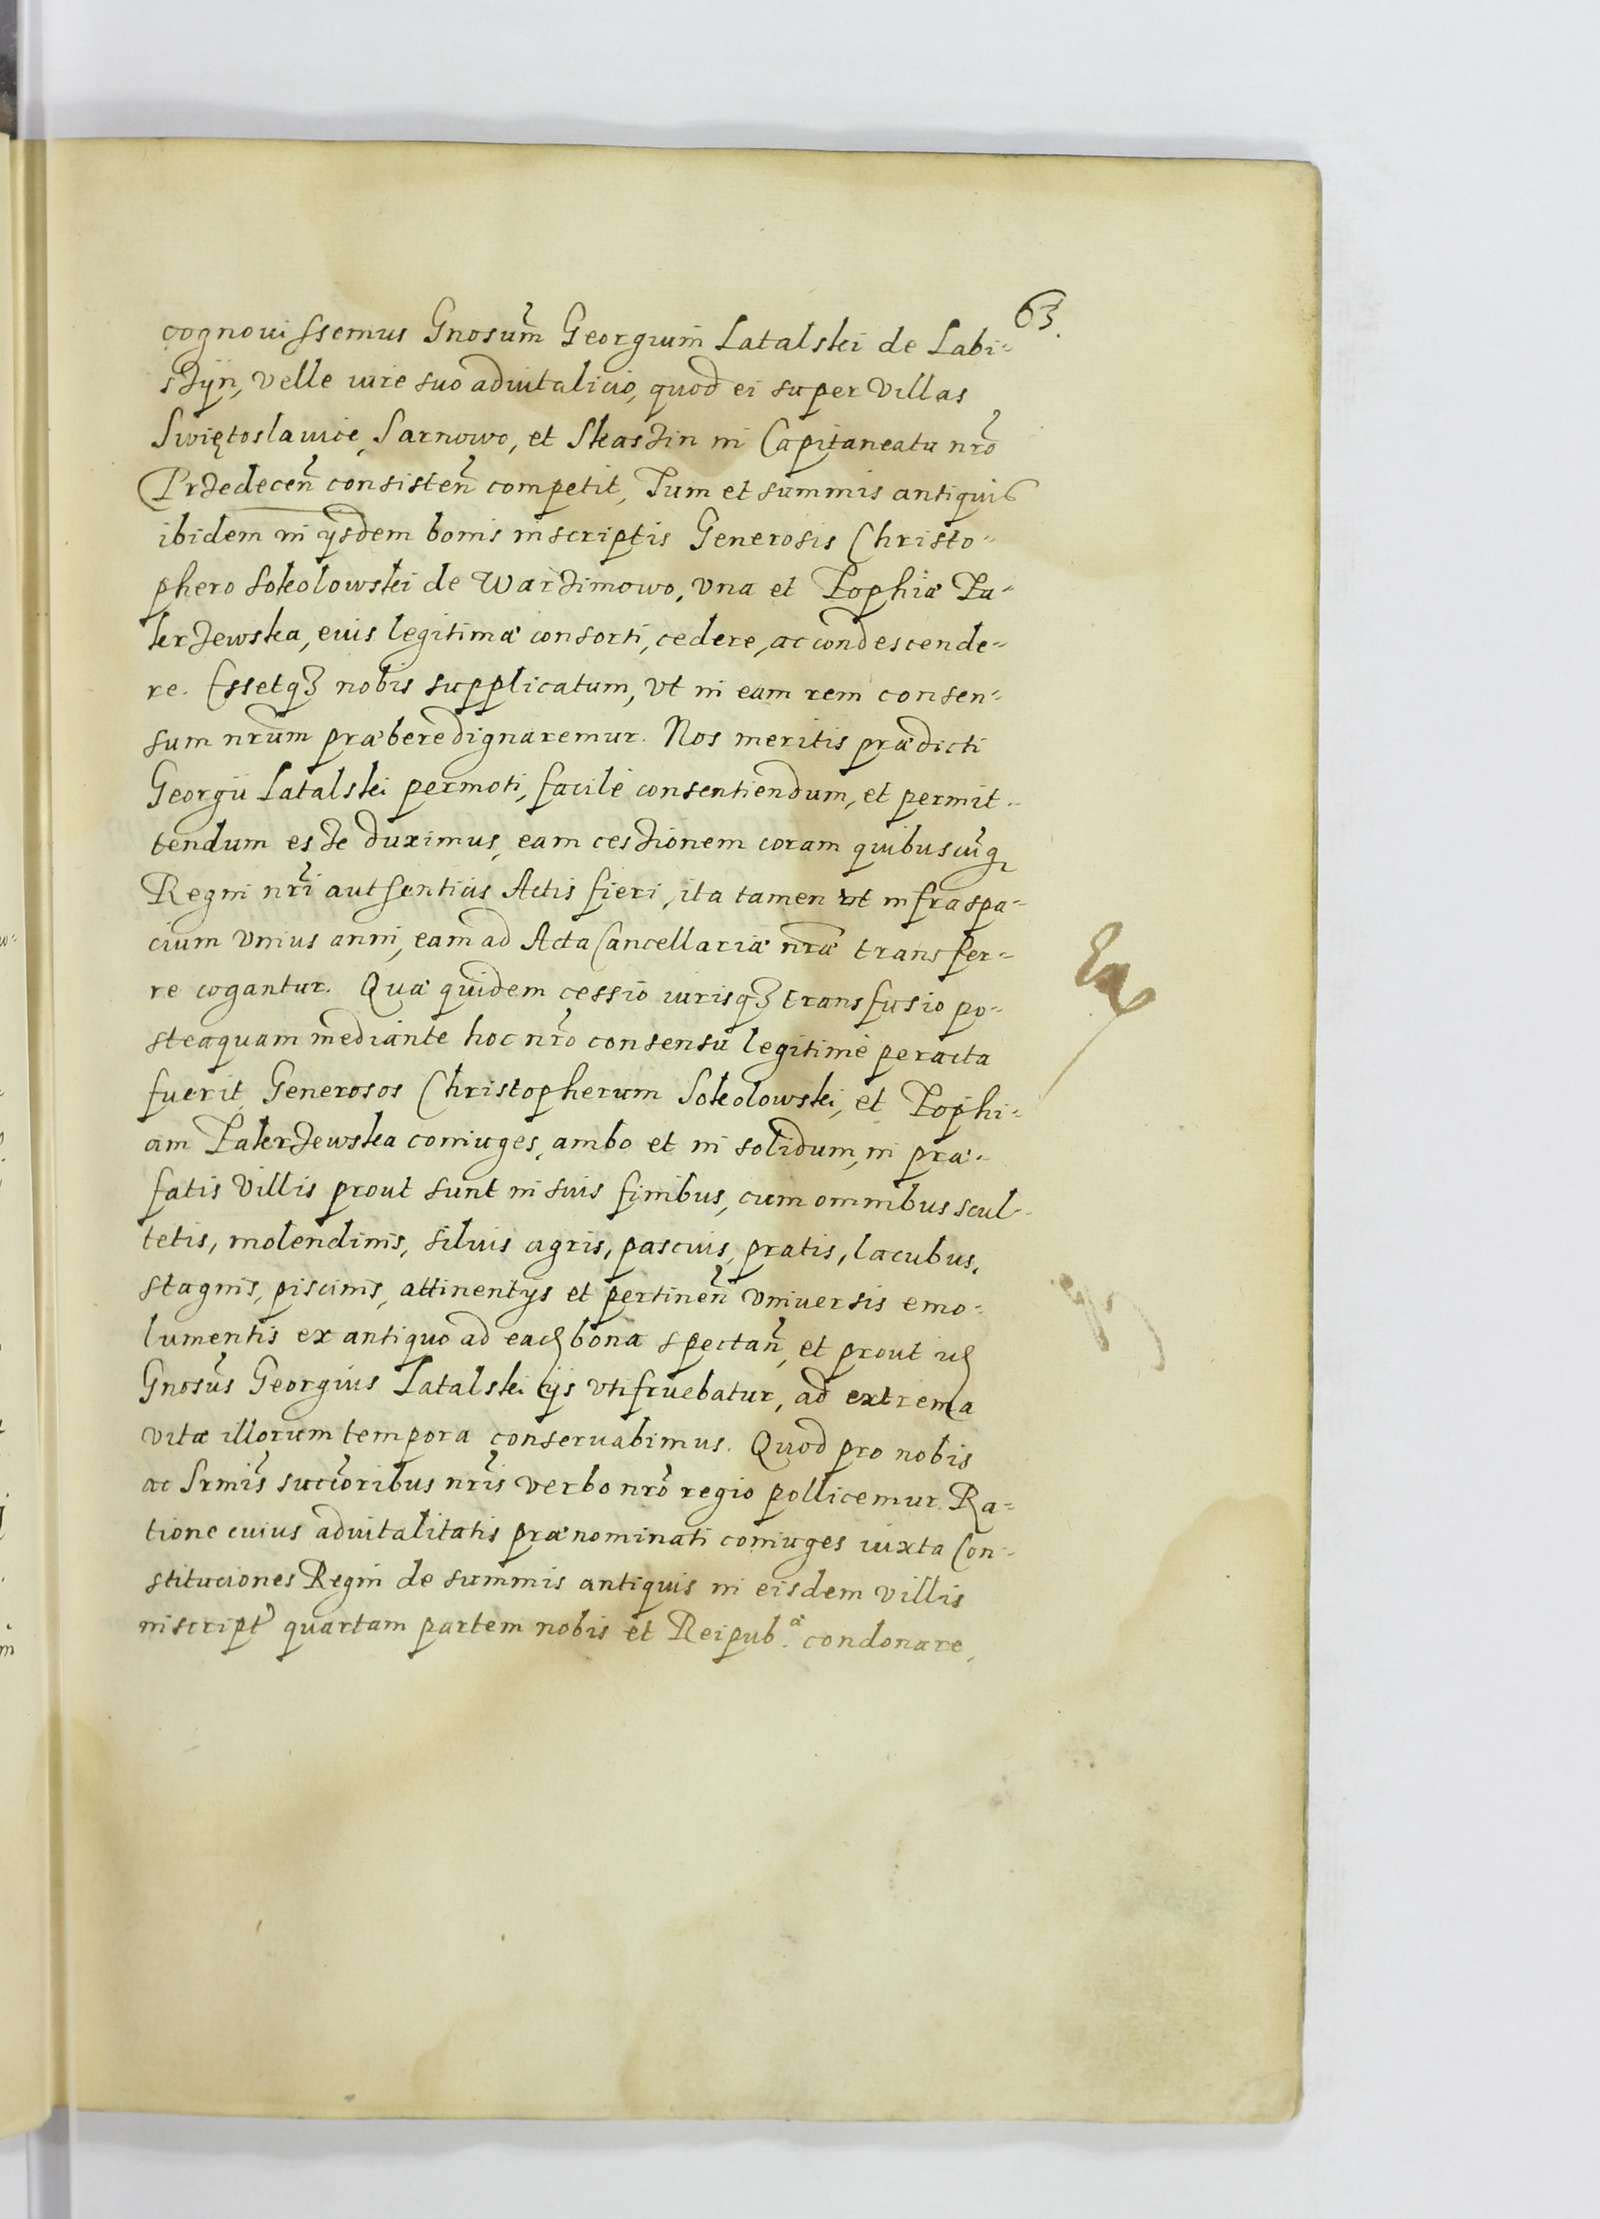 63.
cognouissemus Gnosum̃ Georgium Latalski de Labi-
szÿn, velle iure suo aduitalicio, quod ei super villas
Swiętoslawice, Sarnowo, et Skaszin in Capitaneatu nrõ
Przedecen̄ consisten̄ competit, Tum et summis antiquis
ibidem in ijsdem bonis inscriptis Generosis Christo-
phero Sokolowski de Warzimowo, vna et Zophiæ Za-
kerzewska, eius legitimæ consorti, cedere, ac condescende-
re. Essetqꝫ nobis supplicatum, vt in eam rem consen-
sum nrũm præbere dignaremur. Nos meritis prædicti
Georgii Latalski permoti, facilè consentiendum, et permit-
tendum esze duximus, eam ceszionem coram quibuscũq
Regni nrĩ autsenticis Actis fieri, ita tamen vt infra spa-
cium vnius anni, eam ad Acta Cancellariæ nræ transfer-
re cogantur. Quæ quidem cessio iurisqꝫ transfusio po-
steaquam mediante hoc nrõ consensu legitimè peracta
fuerit, Generosos Christopherum Sokolowski, et Zophi-
am Zakerzewska coniuges, ambo et in solidum, in præ-
fatis villis prout sunt in suis finibus, cum omnibus scul-
tetis, molendinis, siluis agris, pascuis, pratis, lacubus,
stagnis, piscinis, attinentijs et pertinen̄ vniuersis emo-
lumentis ex antiquo ad eaꝫ bona spectan̄, et prout iꝫ
Gnosũs Georgius Latalski ijs vtifruebatur, ad extrema
vitæ illorum tempora conseruabimus. Quod pro nobis
ac Srmĩs succõribus nrĩs verbo nrõ regio pollicemur. Ra-
tione cuius aduitalitatis prænominati coniuges iuxta Con-
stituciones Regni de summis antiquis in eisdem villis
inscript̃ quartam partem nobis et Reipub.æ condonare,